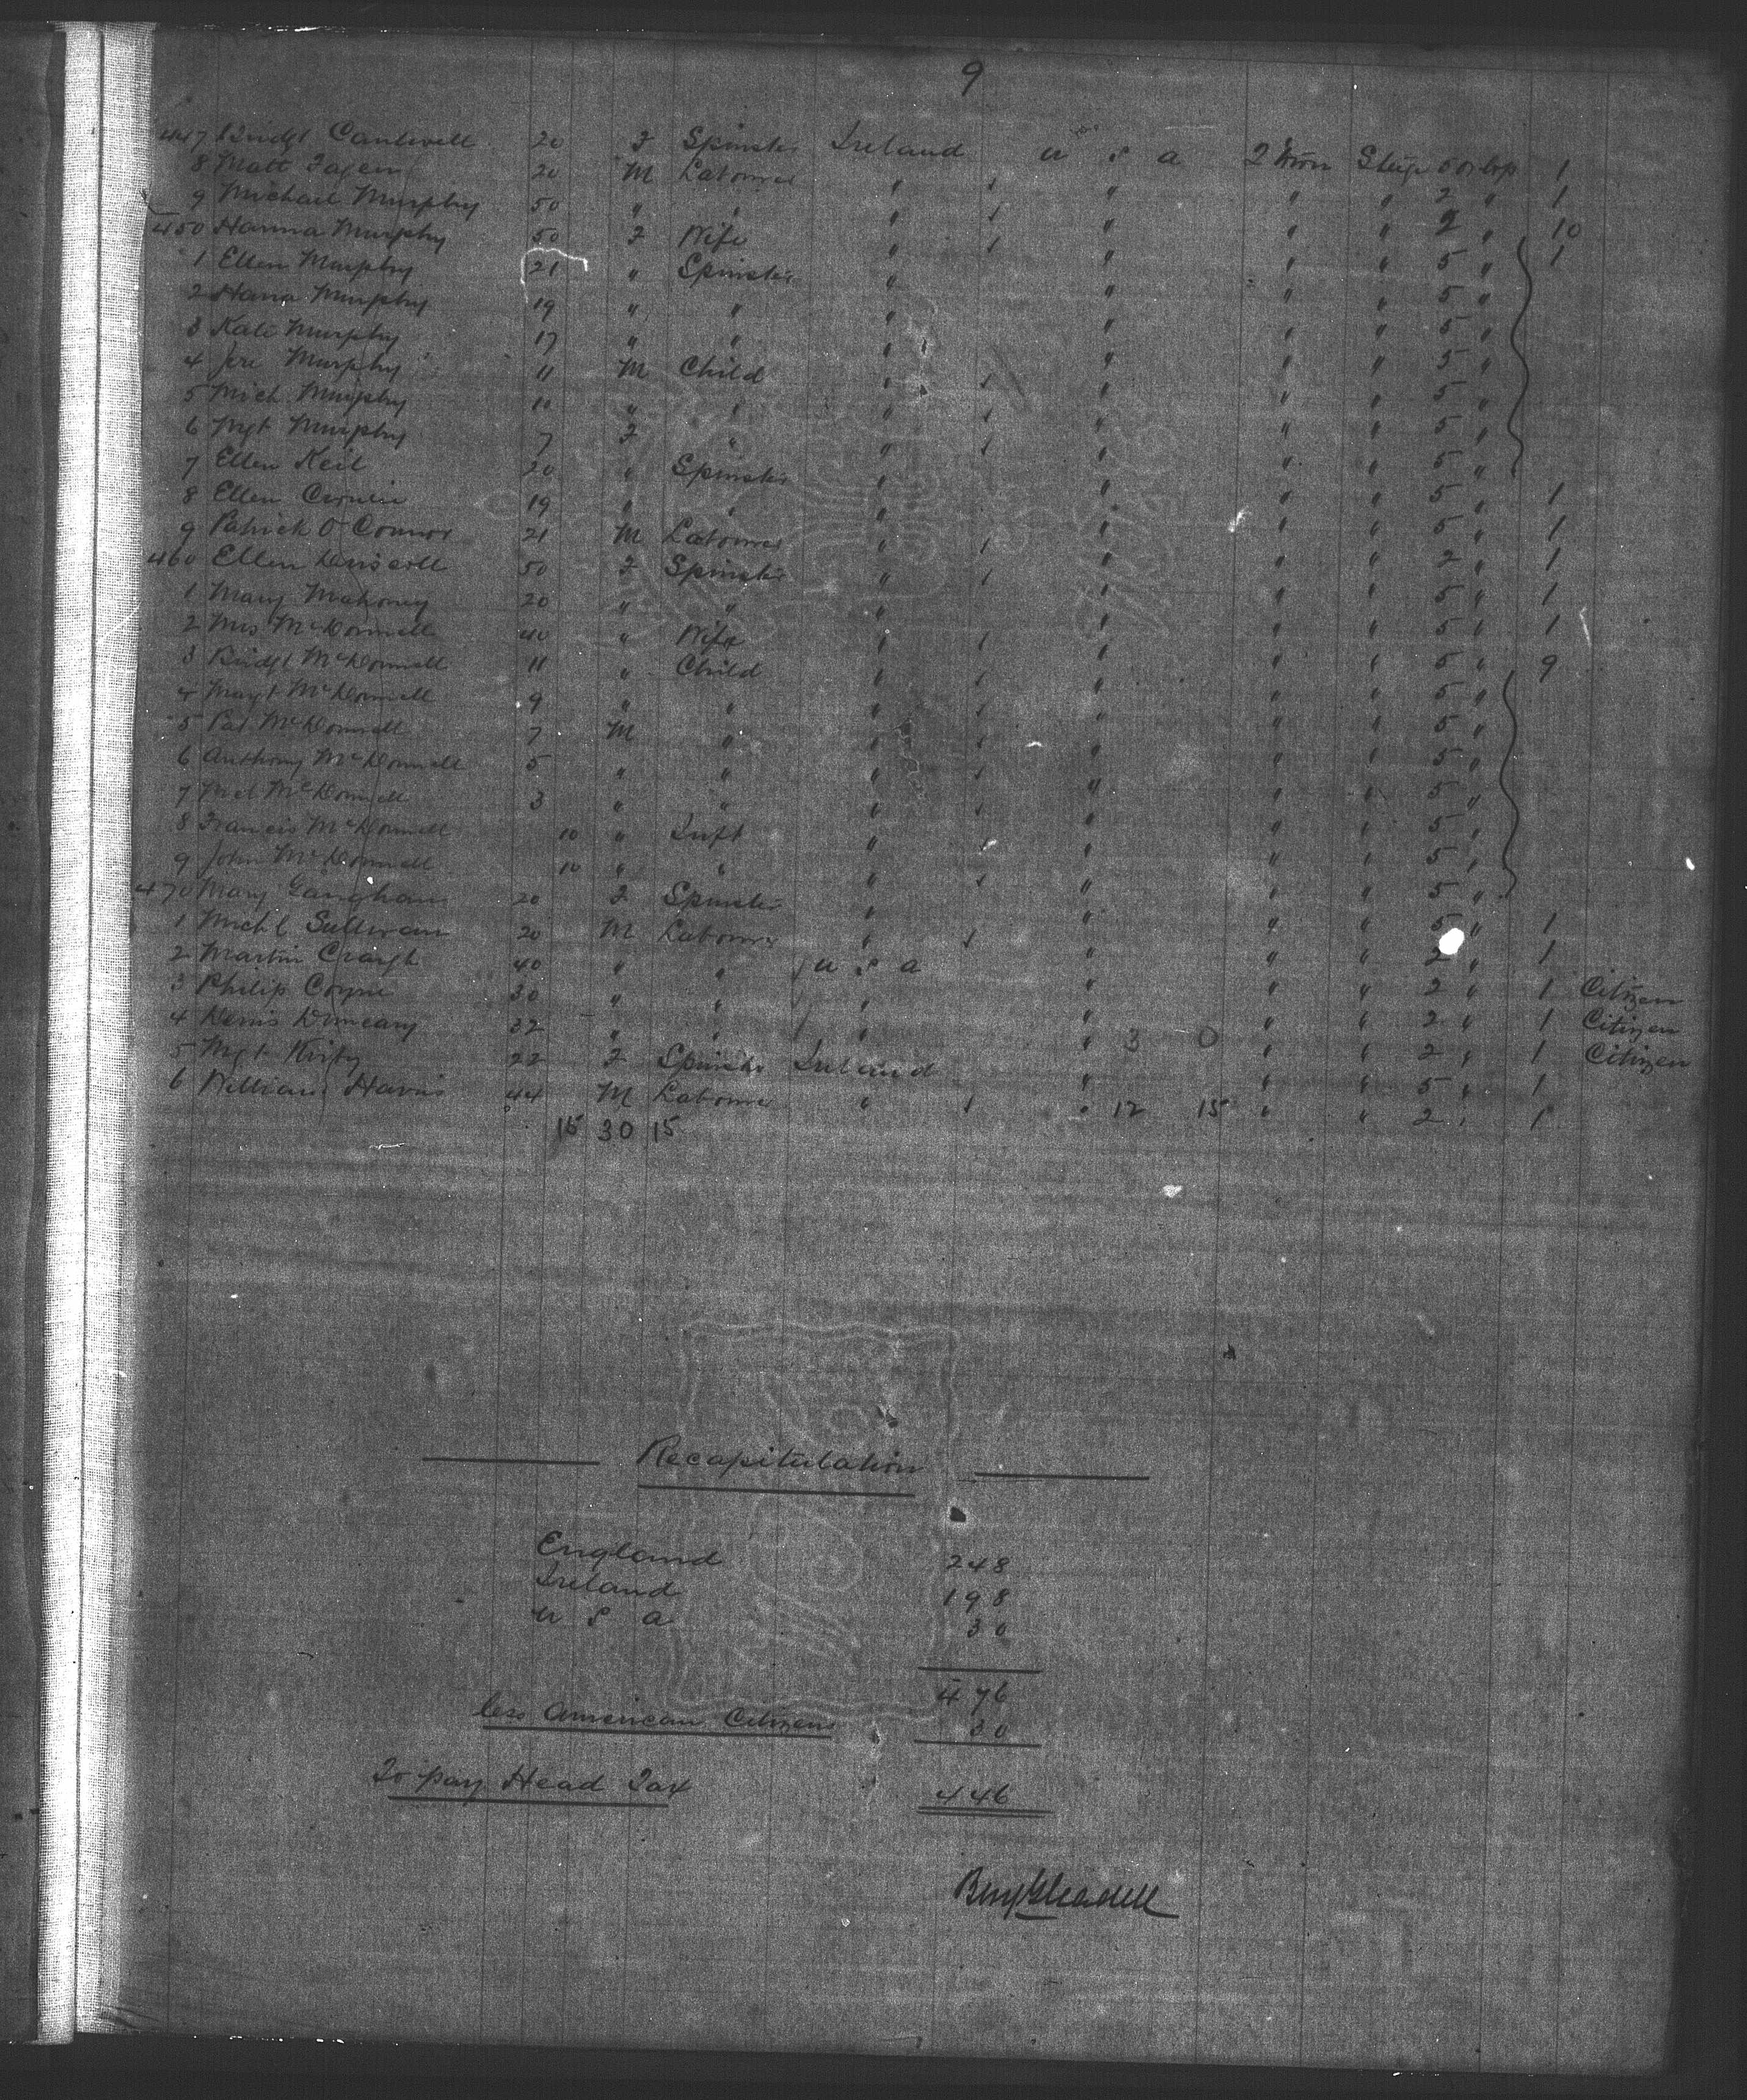 9
447 Bridgt Cantwell 20 F Spinster Ireland U S A 2 Iron Steige 5 Orlop 1
8 Matt Fagen 20 M Labourer " " " " 2 " 1
9 Michael Murphy 50 " " " " " " 2 " 10
450 Hanna Murphy 50 F Wife " " " " 5 " 1
1 Ellen Murphy 21 " Spinster " " " " 5 "
2 Hana Murphy 19 " " " " " " 5 "
3 Kate Murphy 17 " " " " " " 5 "
4 Jere Murphy 11 M Child " " " " 5 "
5 Mich Murphy 10 " " " " " " 5 "
6 Mgt Murphy 7 F " " " " " 5 "
7 Ellen Keil 20 " Spinster " " " " 5 " 1
8 Ellen 19 " " " " " " 5 " 1
9 Patrick O'Connor 21 M Labourer " " " " 2 " 1
460 Ellen Driscoll 50 F Spinster " " " " 5 " 1
1 Mary Mahoney 20 " " " " " " 5 " 1
2 Mrs McDonnell 40 " Wife " " " " 5 " 9
3 Bridgt McDonnell 11 " Child " " " " 5 "
4 Margt McDonnell 9 " " " " " " 5 "
5 Pat McDonnell 7 M " " " " " 5 "
6 Anthony McDonnell 5 " " " " " " 5 "
7 McDonnell 3 " " " " " " 5 "
8 Francis McDonnell 10 " Inft " " " " 5 "
9 John McDonnell 10 " " " " " " 5 "
470 Mary 20 F Spinster " " " " 5 " 1
1 Michl Sullivan 20 M Labourer " " " " 2 " 1
2 Martin 40 " " U S A " " " 2 " 1 Citizen
3 Philip Coyne 30 " " " " " " 2 " 1 Citizen
4 Denis 32 " " " " 3 0 " " 2 " 1 Citizen
5 Mgt Kirby 22 F Spinster Ireland " " " 5 " 1
6 William Harris 44 M Labourer " " 12 15 " " 2 " 1
15 30 15
Recapitulation
England 248
Ireland 198
U S A 30
476
less American Citizens 30
To pay Head Tax 446